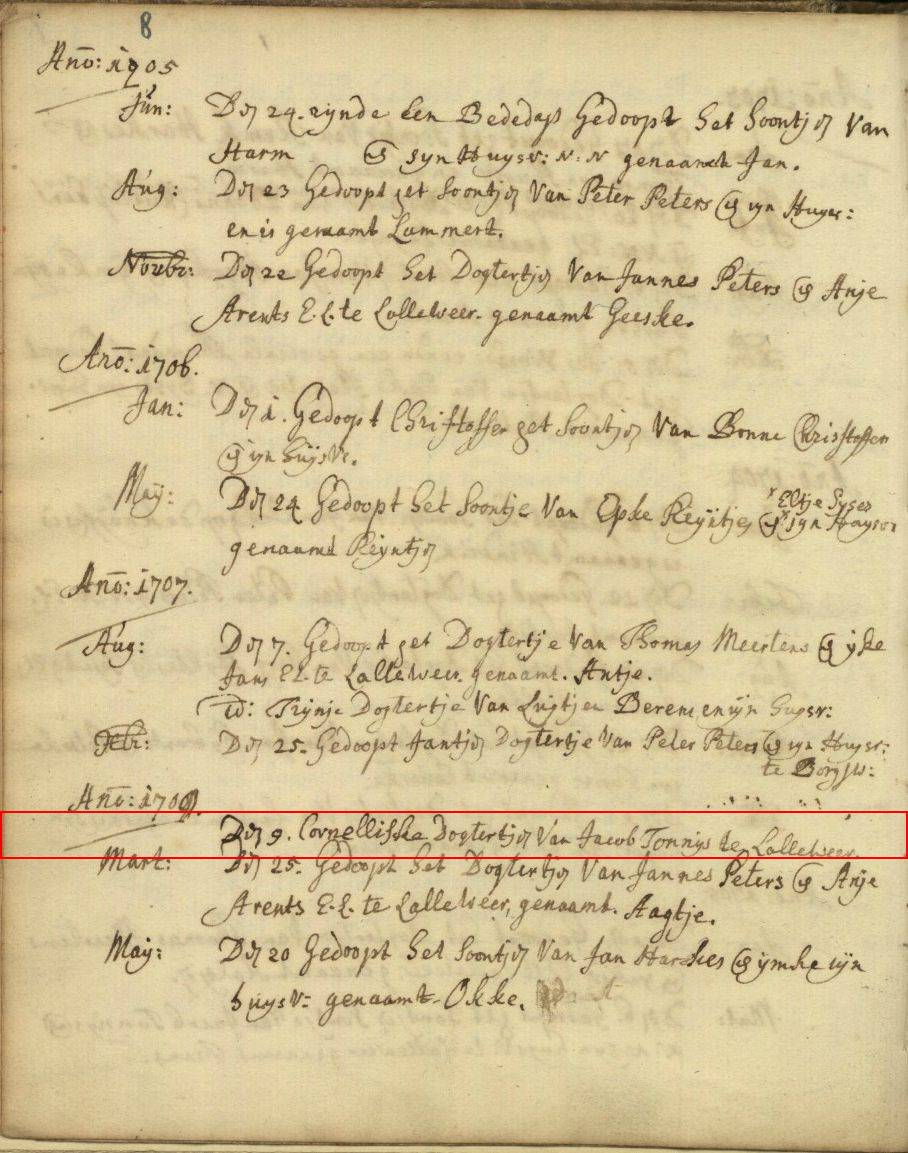 8
Ano: 1705
Jun: Den 24. zijnde Een Bededag Gedoopt het Soontjen Van
Harm en syn Huysv: N: N genaamt Jan.
Aug: Den 23 Gedoopt het Soontjen Van Peter Peters en syn Huysv:
en is genaamt Lammert.
Novbr: Den 22 Gedoopt het Dogtertjen Van Jannes Peters en Anje
Arents E.L. te Lalleweer. genaamt Geeske.
Ano: 1706.
Jan: Den 1. Gedoopt Christoffer het Soontjen Van Bonne Christoffers
en syn huysv.
May: Den 24 Gedoopt het Soontje Van Epke Reyntjes en syn Huysvr
Eltje
genaamt Reyntjen
Ano: 1707.
Aug: Den 7. Gedoopt het Dogtertje Van Thomas Meertens en yke
Jans E.L. te Lalleweer genaamt. Antje.
id: Trijnje Dogtertje Van Luytjen Berens en syn huysvr:
Febr: Den 25. Gedoopt Jantjen Dogtertje Van Peter Peters en syn Huysv:
te Borgsw:
Ano: 1709.
Den 9. Cornelliske Dogtertjen Van Jacob Tonnys te Lalleweer.
Mart: Den 25. Gedoopt het Dogtertjen Van Jannes Peters en Anje
Arents E.L. te Lalleweer, genaamt. Aagtje.
May: Den 20 Gedoopt het Soontjen Van Jan Harckes en ymke syn
huysv: genaamt Okke.